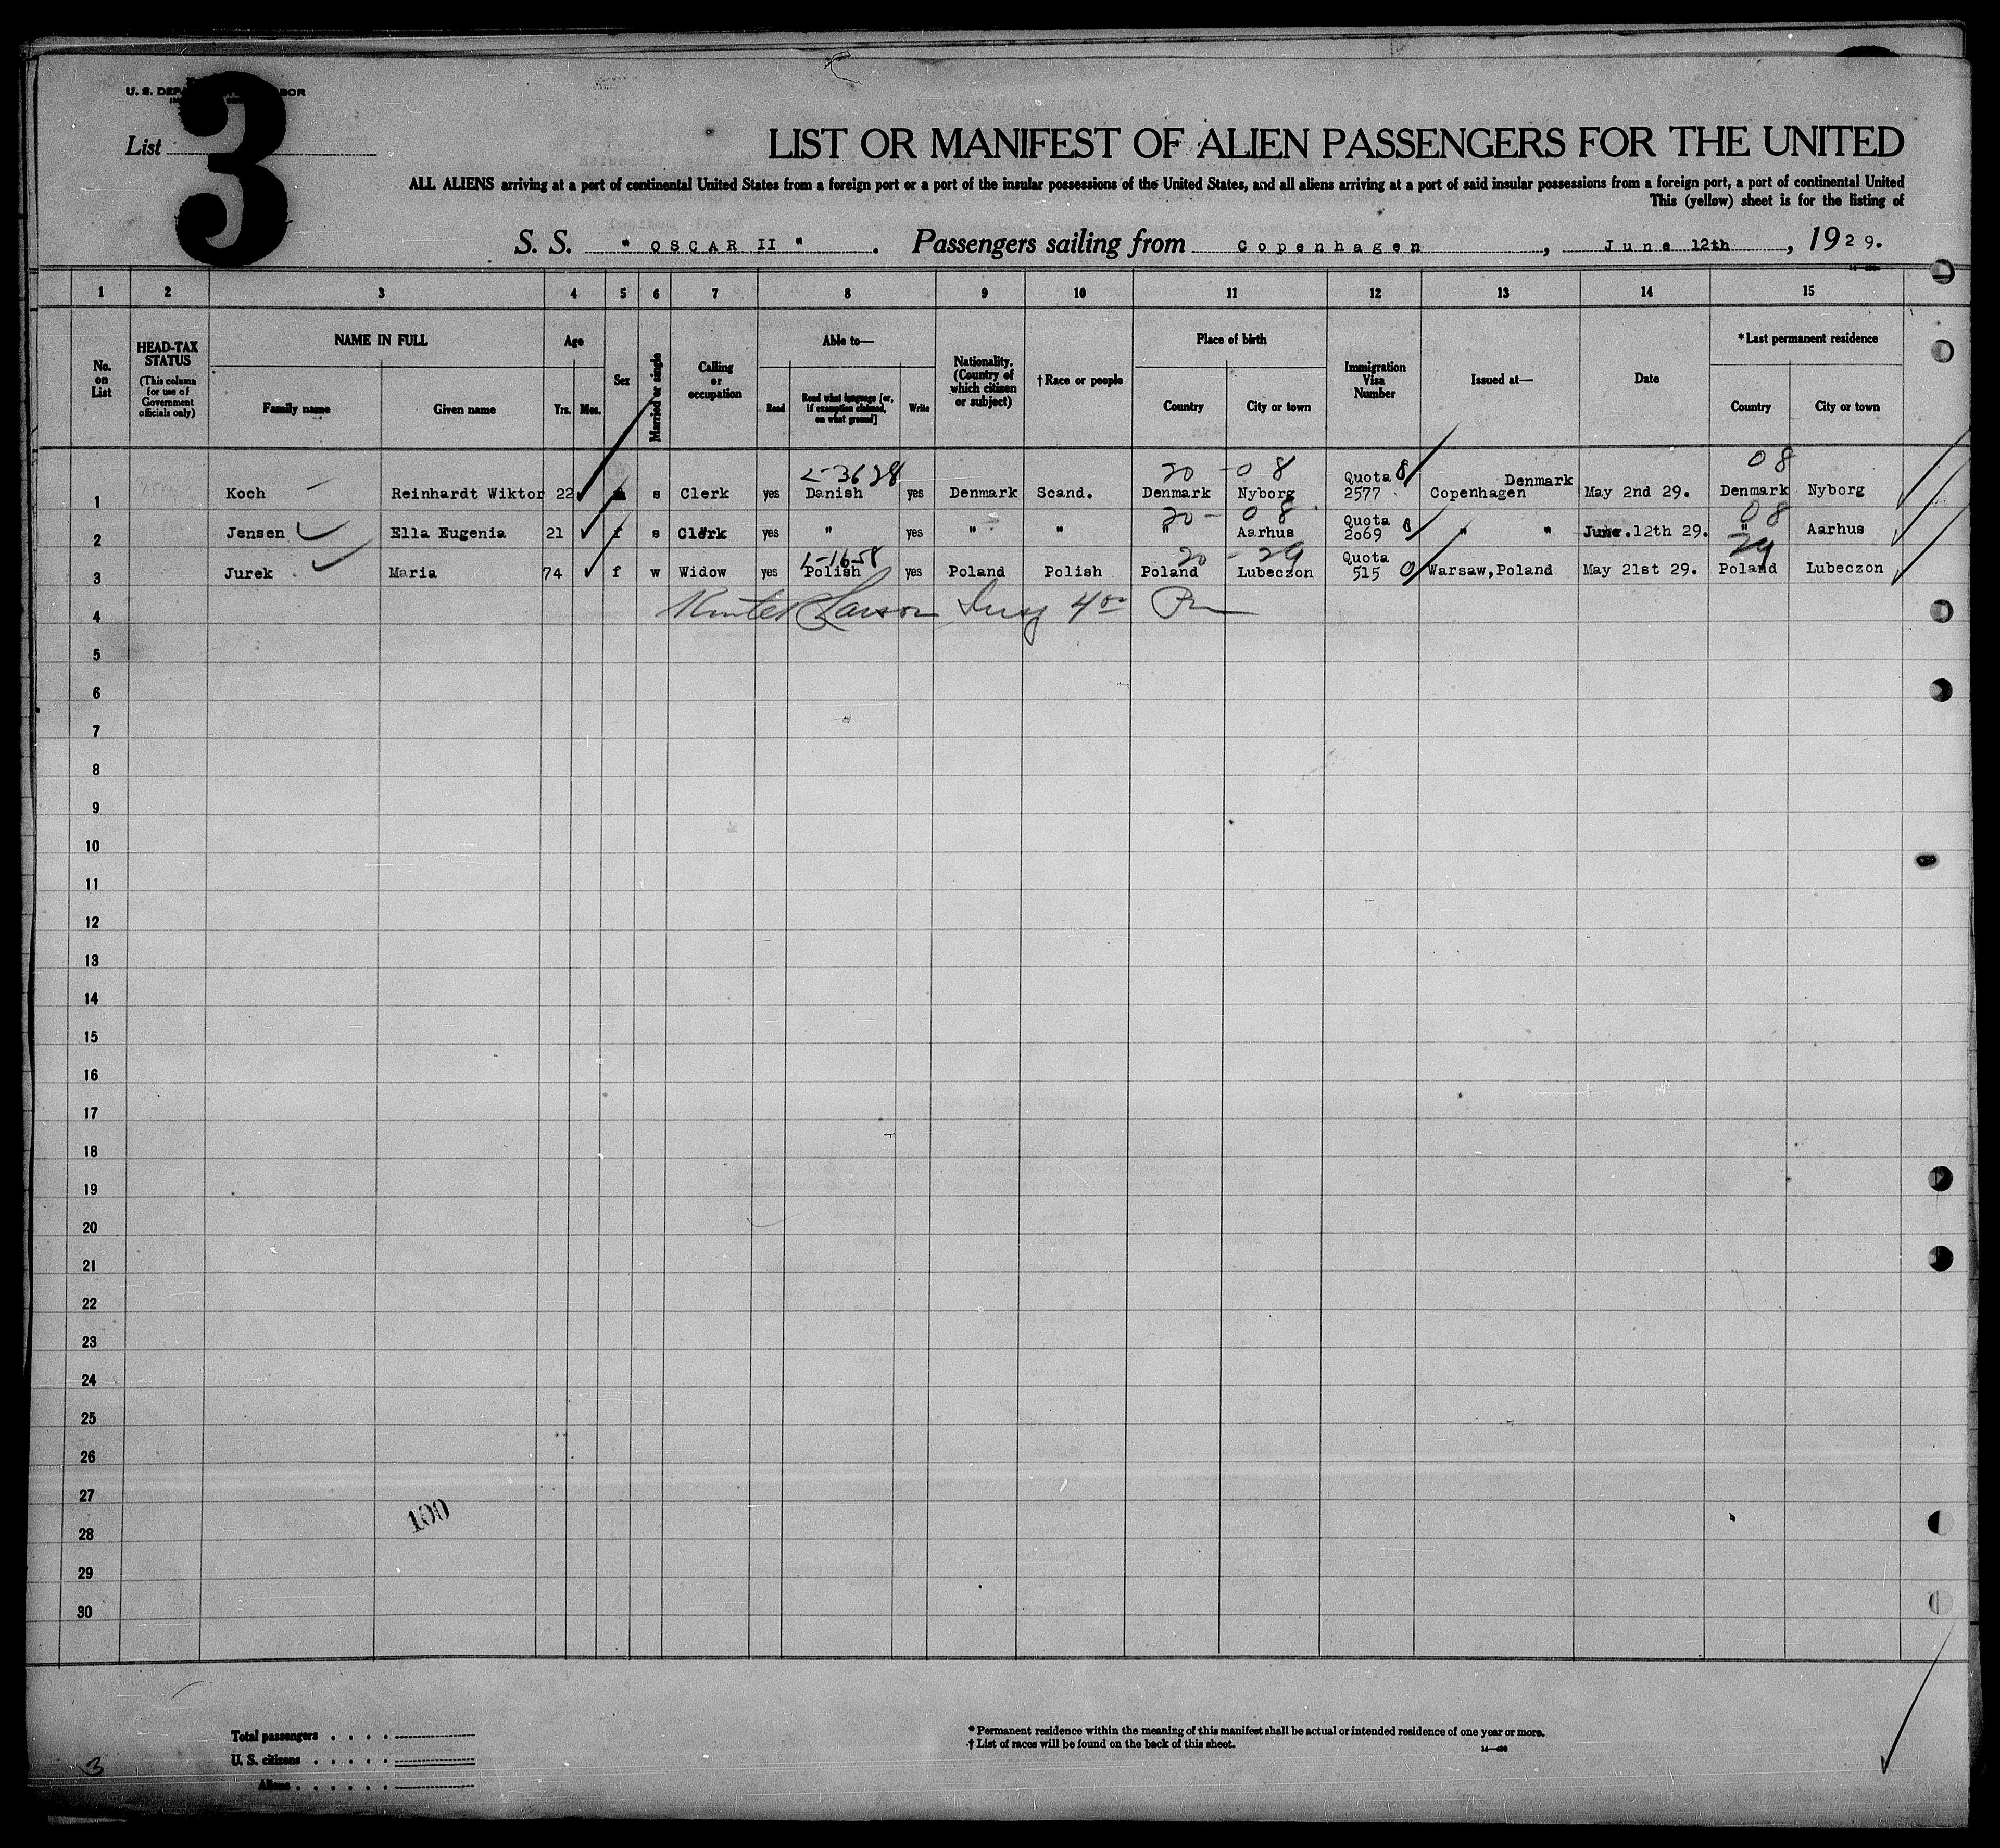 U. S. DEPA BOR
List
3
LIST OR MANIFEST OF ALIEN PASSENGERS FOR THE UNITED
ALL ALIENS arriving at a port of continental United States from a foreign port or a port of the insular possessions of the United States, and all aliens arriving at a port of said insular possessions from a foreign port, a port of continental United
This (yellow) sheet is for the listing of
S. S. " OSCAR II " . Passengers sailing from Copenhagen , June 12th , 1929.
1 2 3 4 5 6 7 8 9 10 11 12 13 14 15
No. on List
HEAD-TAX STATUS (This column for use of Government officials only)
NAME IN FULL
Family name Given name
Age
Yrs. Mos.
Sex
Married or single
Calling or occupation
Able to—
Read Read what language [or, if exemption claimed, on what ground] Write
Nationality. (Country of which citizen or subject)
†Race or people
Place of birth
Country City or town
Immigration Visa Number
Issued at—
Date
*Last permanent residence
Country City or town
2-3628 20 -08 08
1 Koch Reinhardt Wiktor 22 s Clerk yes Danish yes Denmark Scand. Denmark Nyborg Quota 2577 Copenhagen Denmark May 2nd 29. Denmark Nyborg
20- 08 08
2 Jensen Ella Eugenia 21 f s Clerk yes " yes " " " Aarhus Quota 2o69 " " June.12th 29. " Aarhus
20 - 29 29
3 Jurek Maria 74 f w Widow yes Polish yes Poland Polish Poland Lubeczon Quota 515 Warsaw,Poland May 21st 29. Poland Lubeczon
4
5
6
7
8
9
10
11
12
13
14
15
16
17
18
19
20
21
22
23
24
25
26
27
100
28
29
30
Total passengers
U. S. citizens
Aliens
* Permanent residence within the meaning of this manifest shall be actual or intended residence of one year or more.
† List of races will be found on the back of this sheet.
3